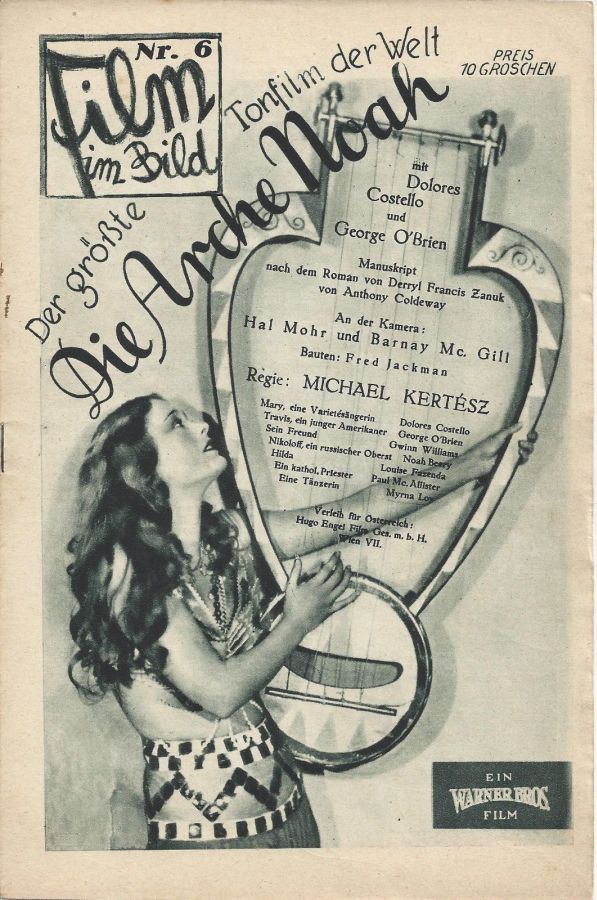 Nr. 6
Film
im Bild
PREIS
10 GROSCHEN
Der größte Tonfilm der Welt
Die Arche Noah
mit
Dolores
Costello
und
George O'Brien
Manuskript
nach dem Roman von Derryl Francis Zanuk
von Anthony Coldeway
An der Kamera:
Hal Mohr und Barnay Mc. Gill
Bauten: Fred Jackman
Regie: MICHAEL KERTÉSZ
Mary, eine Varietésängerin Dolores Costello
Travis, ein junger Amerikaner George O'Brien
Sein Freund Gwinn Williams
Nikoloff, ein russischer Oberst Noah Beery
Hilda Louise Fazenda
Ein kathol. Priester Paul Mc. Allister
Eine Tänzerin Myrna Loy
Verleih für Österreich:
Hugo Engel Film Ges. m. b. H.
Wien VII.
EIN
WARNER BROS.
FILM